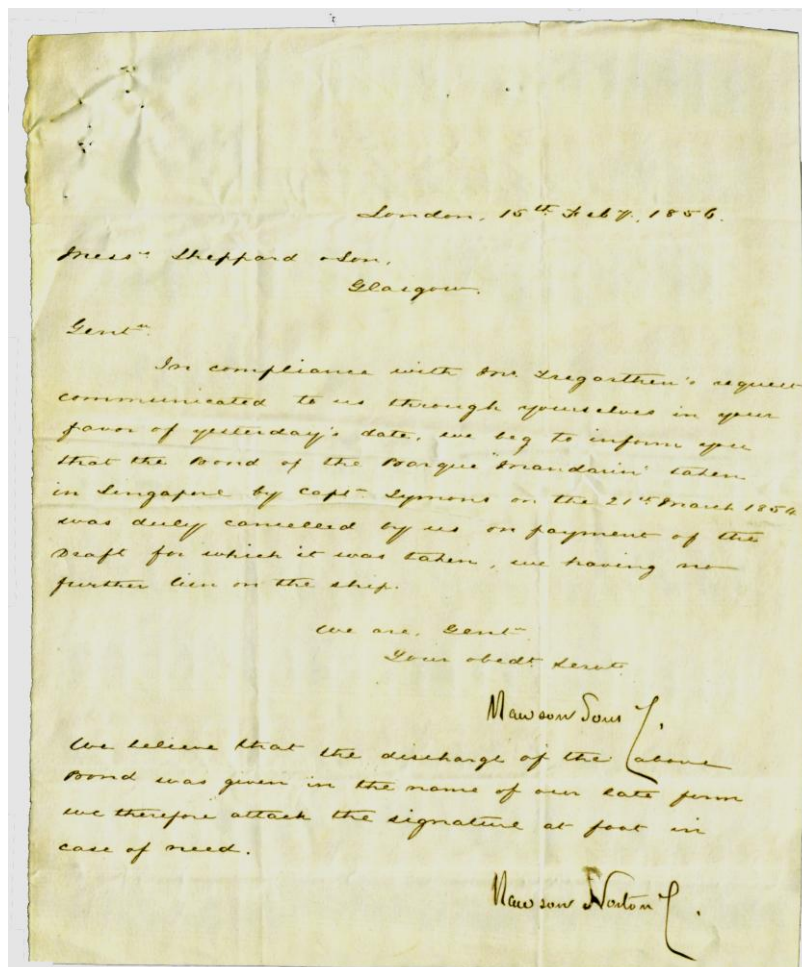 London, 15th Feby. 1856.
Messrs Sheppard & Son,
Glasgow.
Gentn.
In compliance with Mr. Tregarthen's request
communicated to us through yourselves in your
favor of yesterday's date, we beg to inform you
that the Bond of the Barque "Mandarin" taken
in Singapore by Captn Symons on the 21st March 1854
was duly cancelled by us on payment of the
Draft for which it was taken, we having no
further lien on the ship.
We are, Gentn
Your obedt Servts
Sons
We believe that the discharge of the above
Bond was given in the name of our late firm
we therefore attach the signature at foot in
case of need.
Norton